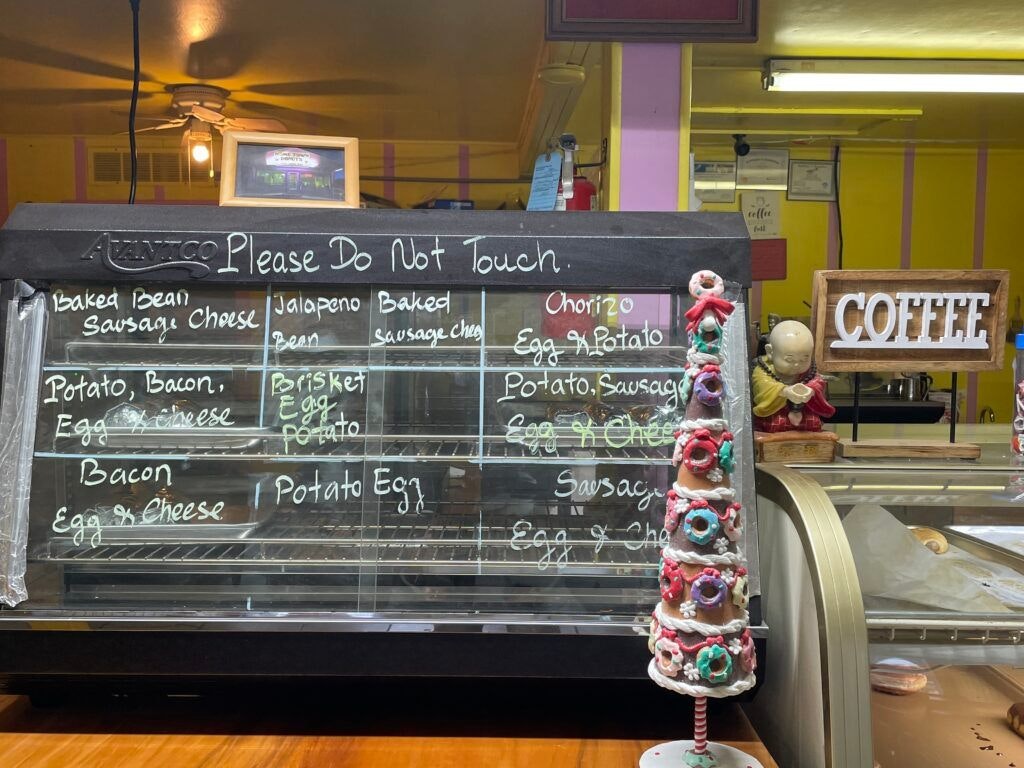 HOME TOWN
DONUTS
AVANTCO
Please Do Not Touch.
Baked Bean
Sausage Cheese
Jalapeno
Bean
Baked
Sausage chees
Chorizo
Egg & Potato
Potato, Bacon,
Egg & Cheese
Brisket
Egg
potato
Potato, Sausag
Egg & Chee
Bacon
Egg & Cheese
Potato Egg
Sausag
Egg & Che
coffee
COFFEE